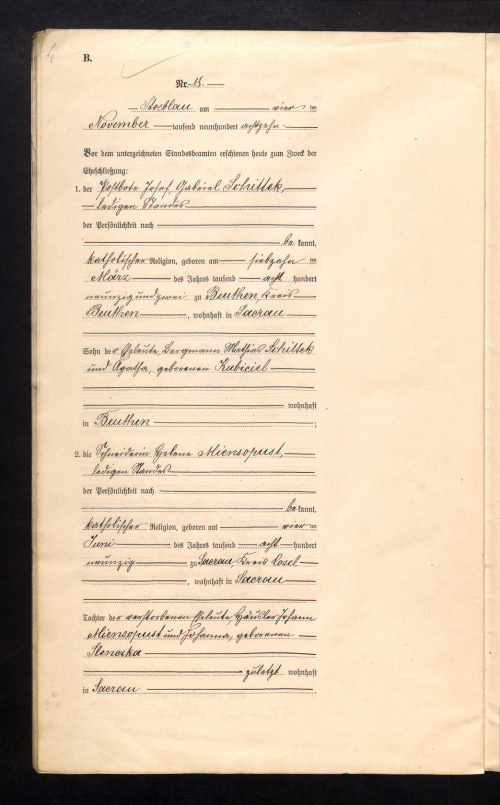 B.
Nr. 18.
Stoeblau am vier ten
November tausend neunhundert achtzehn.
Vor dem unterzeichneten Standesbeamten erschienen heute zum Zweck der
Eheschließung:
1. der Postbote Josef Gabriel Schittek,
ledigen Standes
der Persönlichkeit nach
be kannt,
katholischer Religion, geboren am siebzehn ten
März des Jahres tausend acht hundert
neunzig und zwei zu Beuthen, Kreis
Beuthen, wohnhaft in Sacrau
Sohn der Eheleute, Bergmann Mathias Schittek
und Agatha, geborenen Kubiciel
wohnhaft
in Beuthen;
2. die Schneiderin Helene Miensopust,
ledigen Standes
der Persönlichkeit nach
be kannt,
katholischer Religion, geboren am vier ten
Juni des Jahres tausend acht hundert
neunzig zu Sacrau, Kreis Cosel
, wohnhaft in Sacrau
Tochter der verstorbenen Eheleute, Häusler Johann
Miensopust und Johanna, geborenen
Slenczka
zuletzt wohnhaft
in Sacrau.